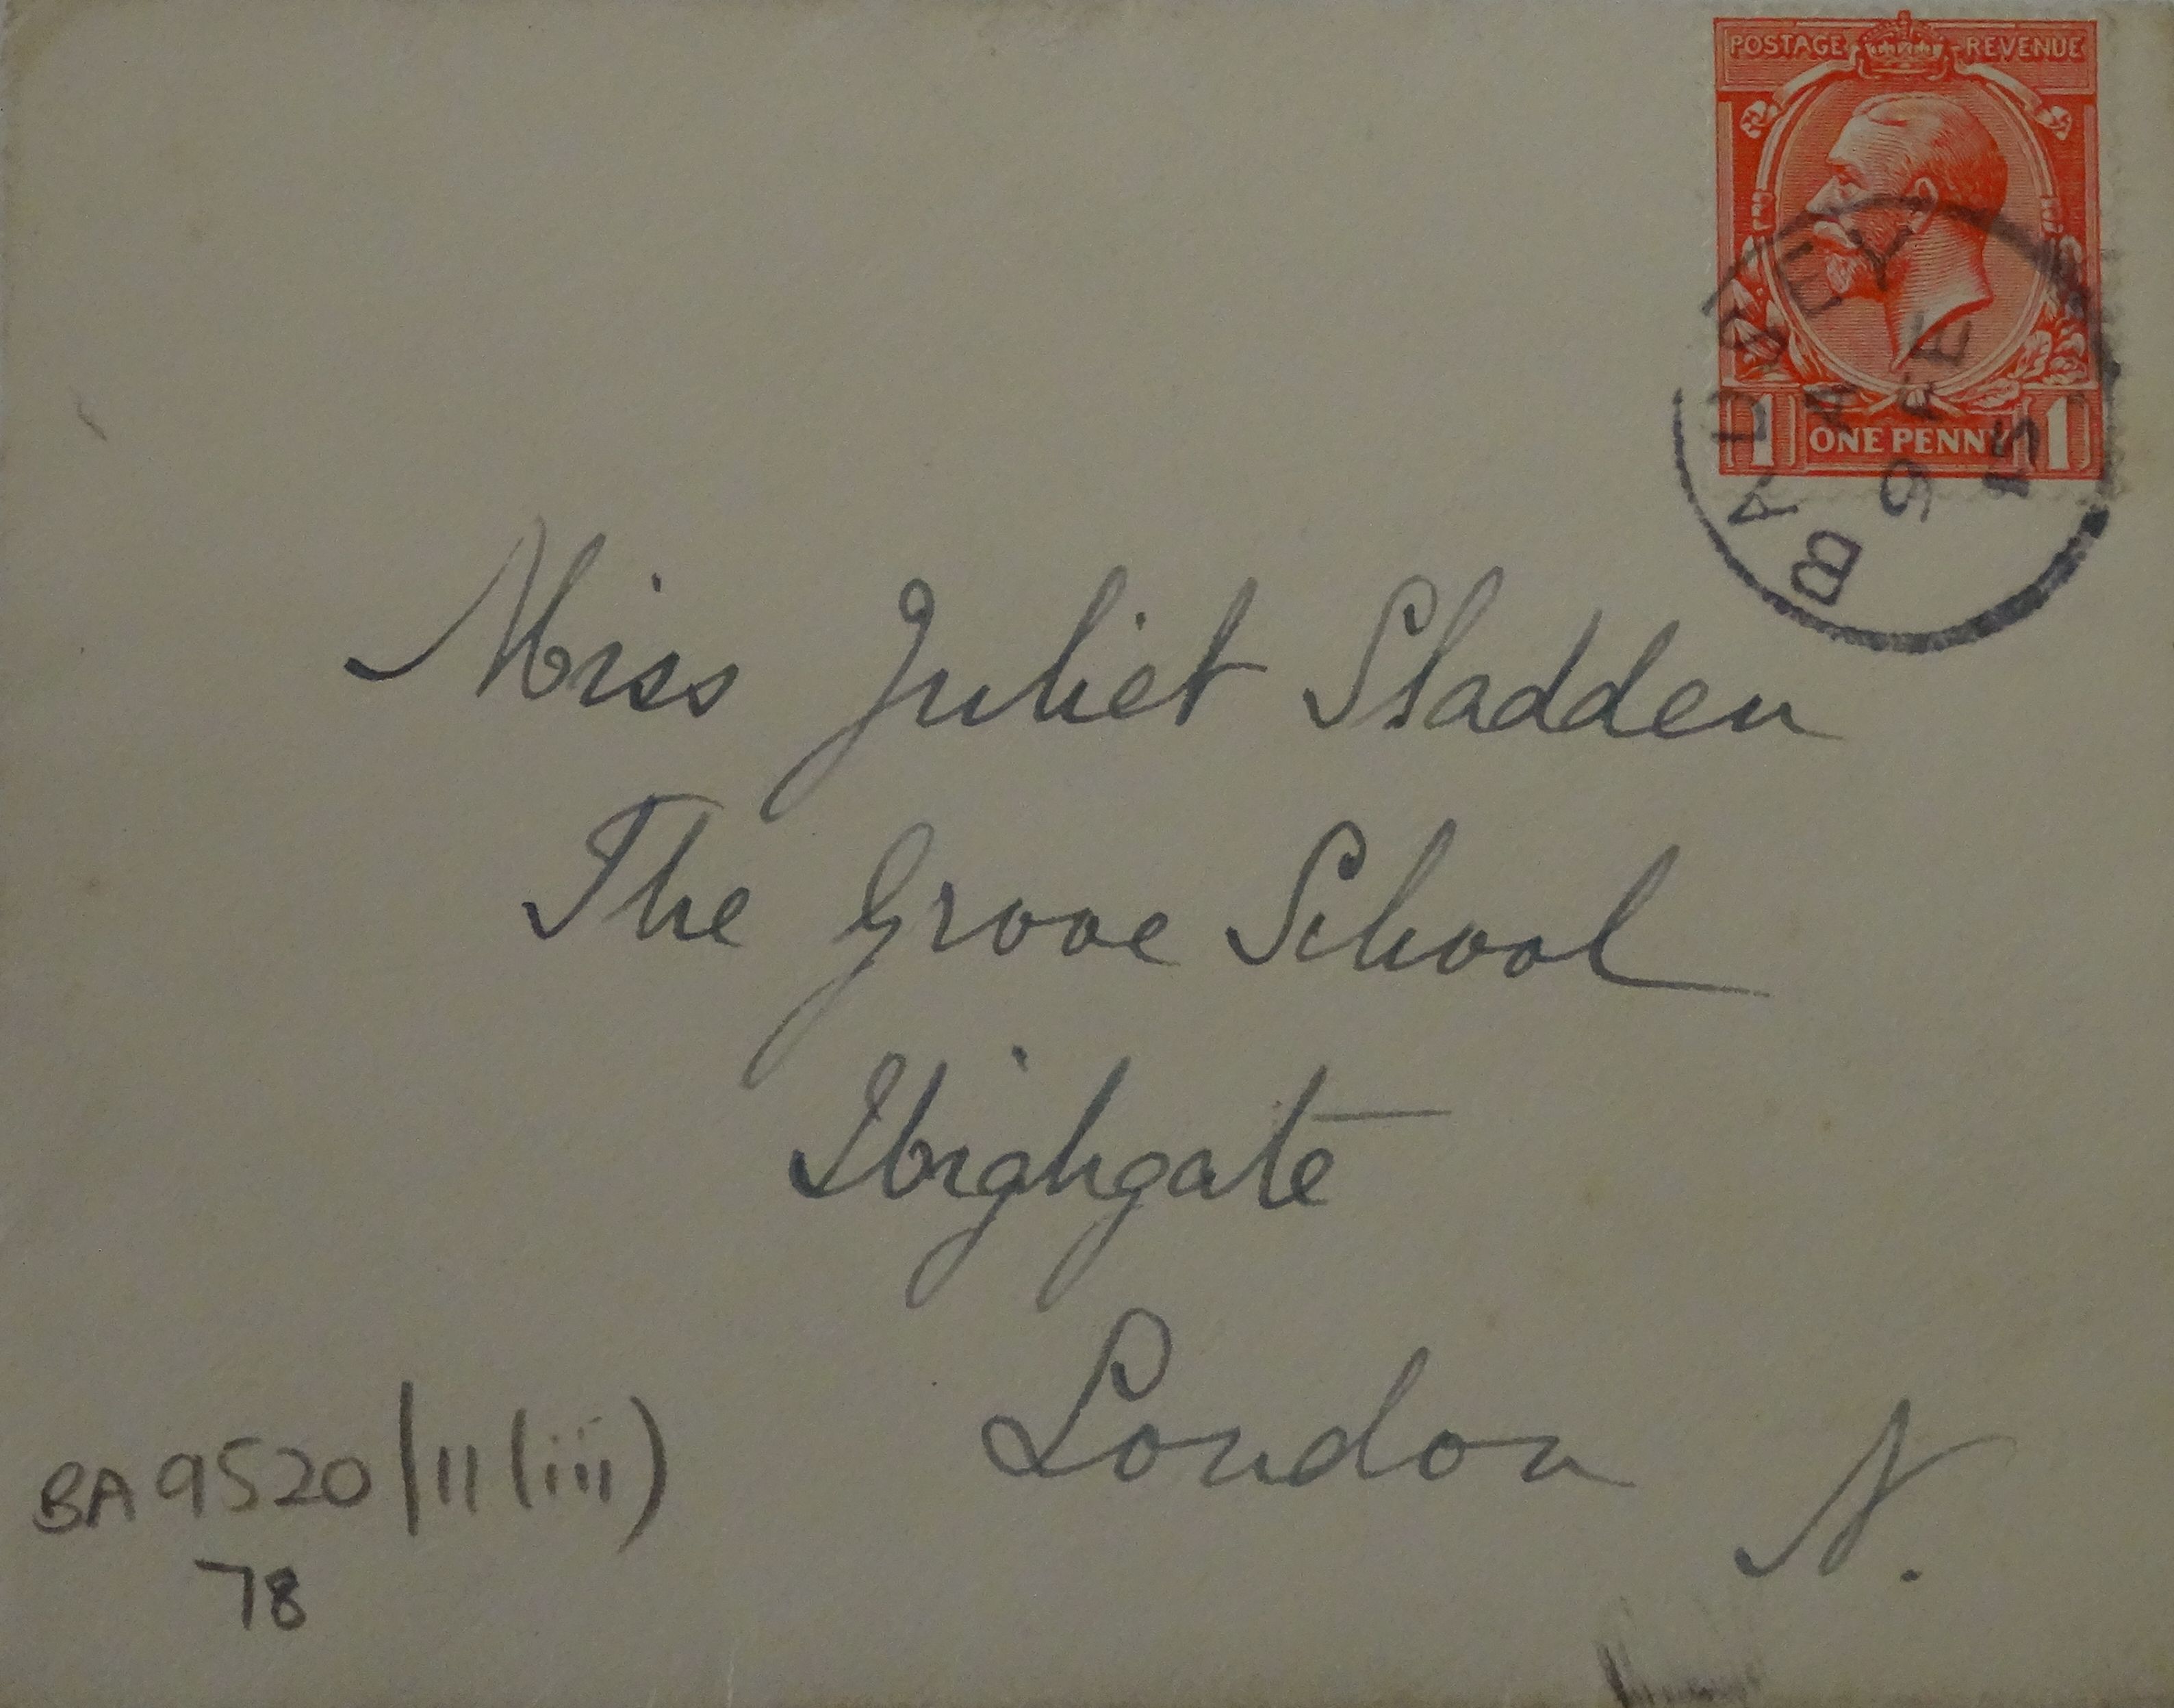 POSTAGE REVENUE
ONE PENNY
1 1
BADSEY
A
9 FE
15
Miss Juliet Sladden
The Grove School
Highgate
London N.
BA 9520/11(iii)
78